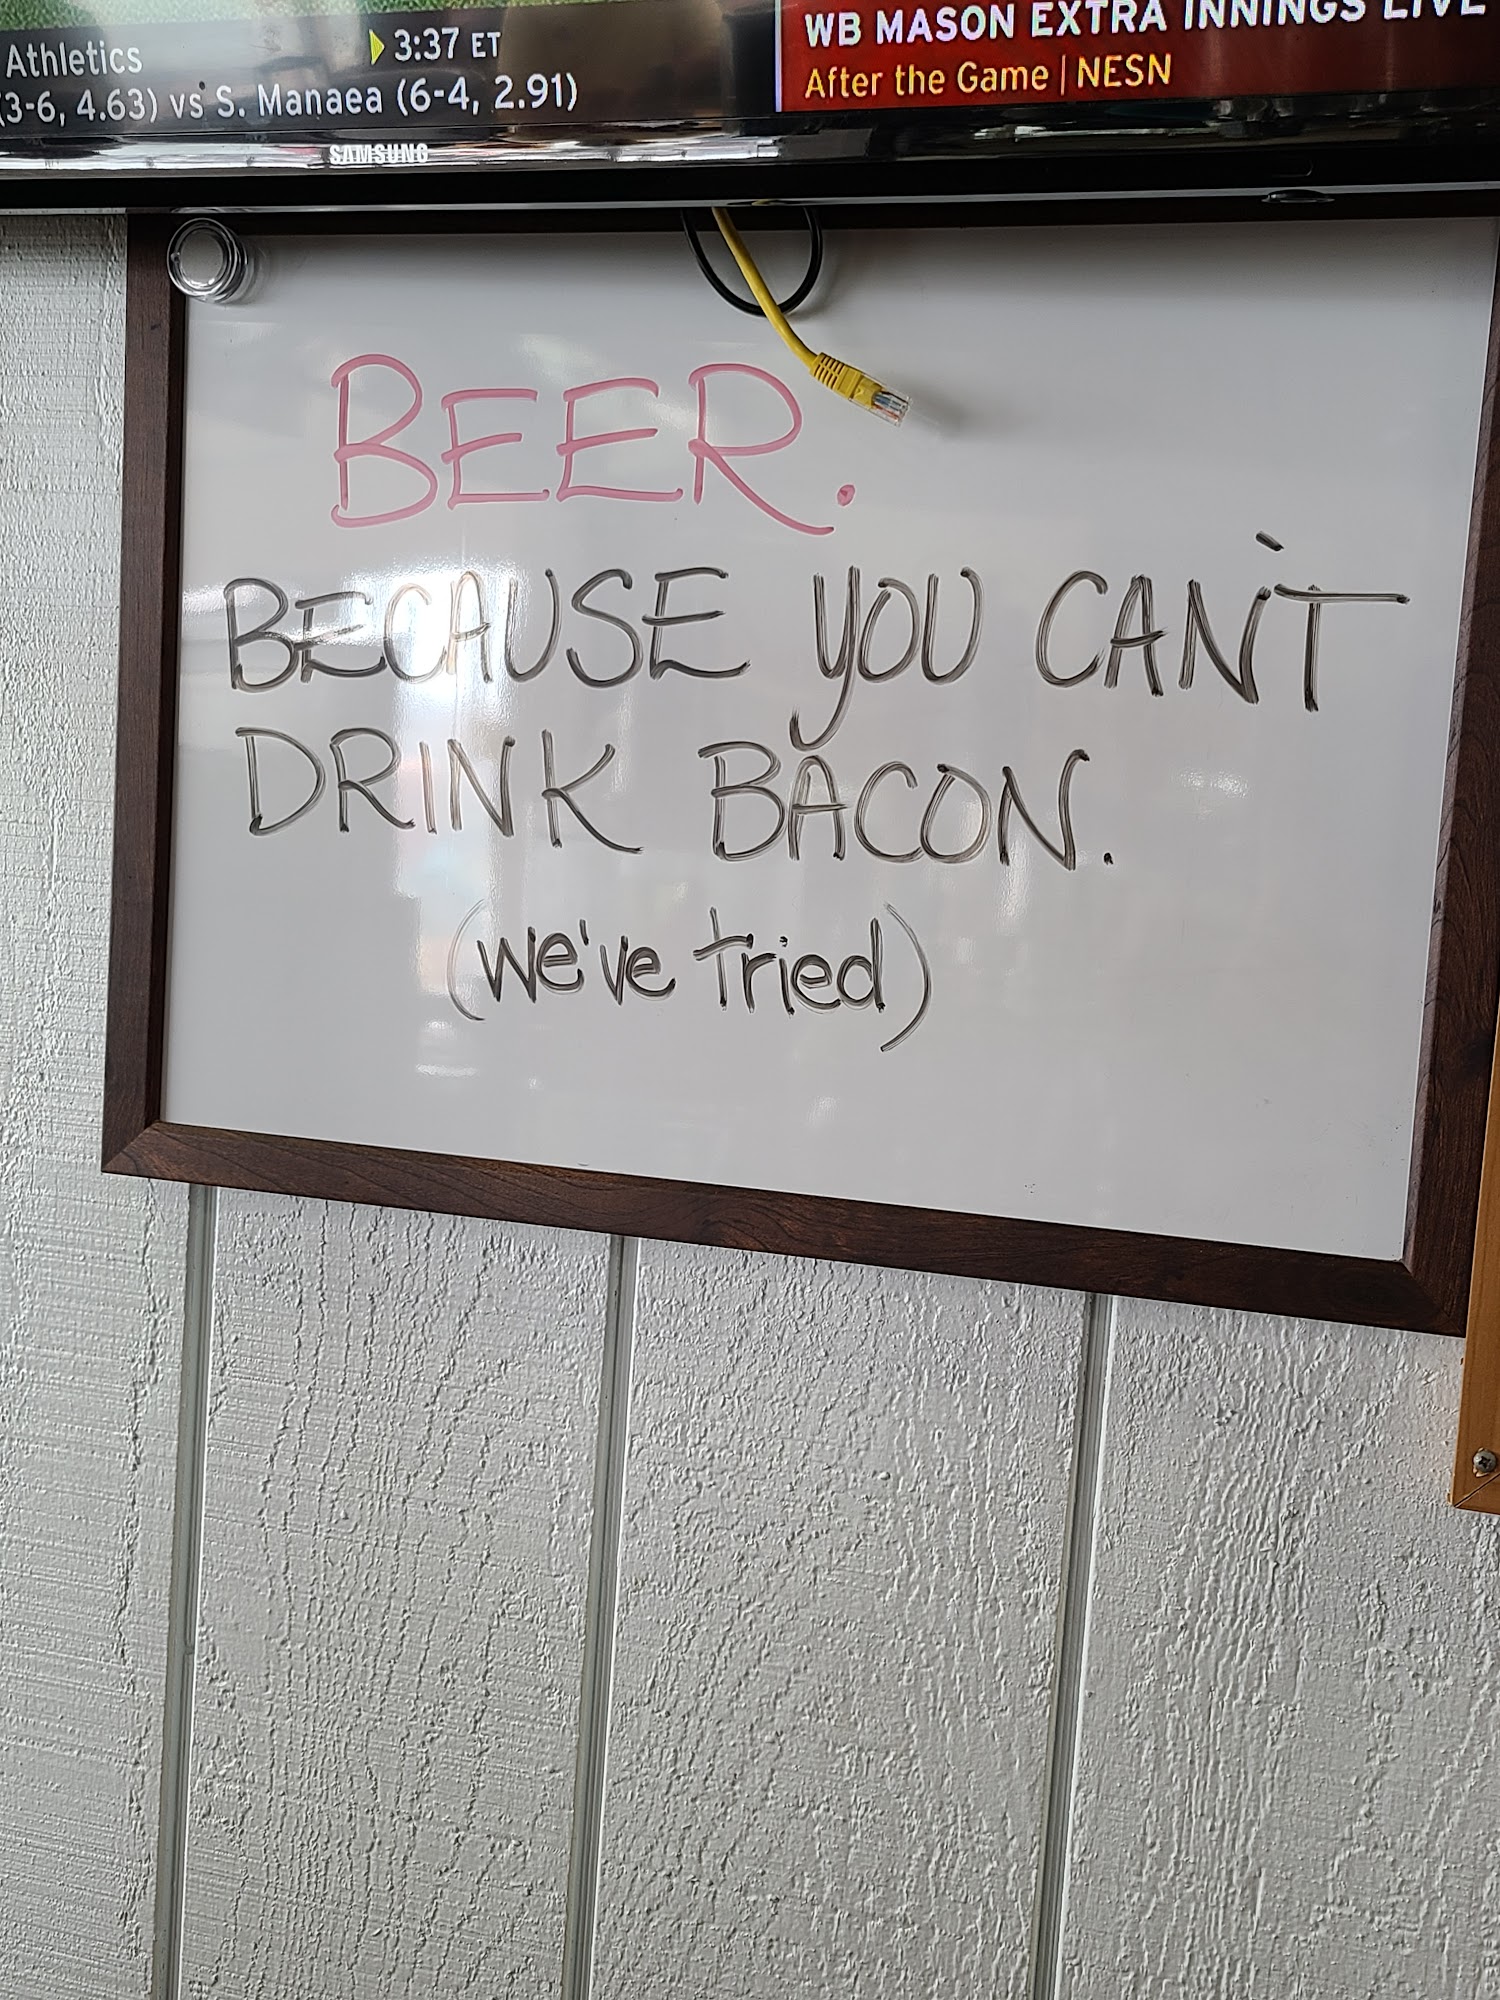 Athletics
3:37 ET
(3-6, 4.63) vs S. Manaea (6-4, 2.91)
WB MASON EXTRA INNINGS LIVE
After the Game | NESN
SAMSUNG
BEER.
BECAUSE YOU CAN'T
DRINK BACON.
(we've tried)